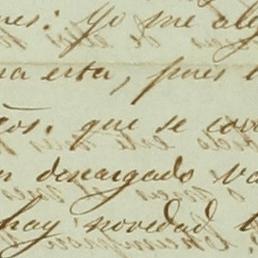 nes: Yo me ale
na esta, pues
ños. que se con
n descargado va
hay novedad